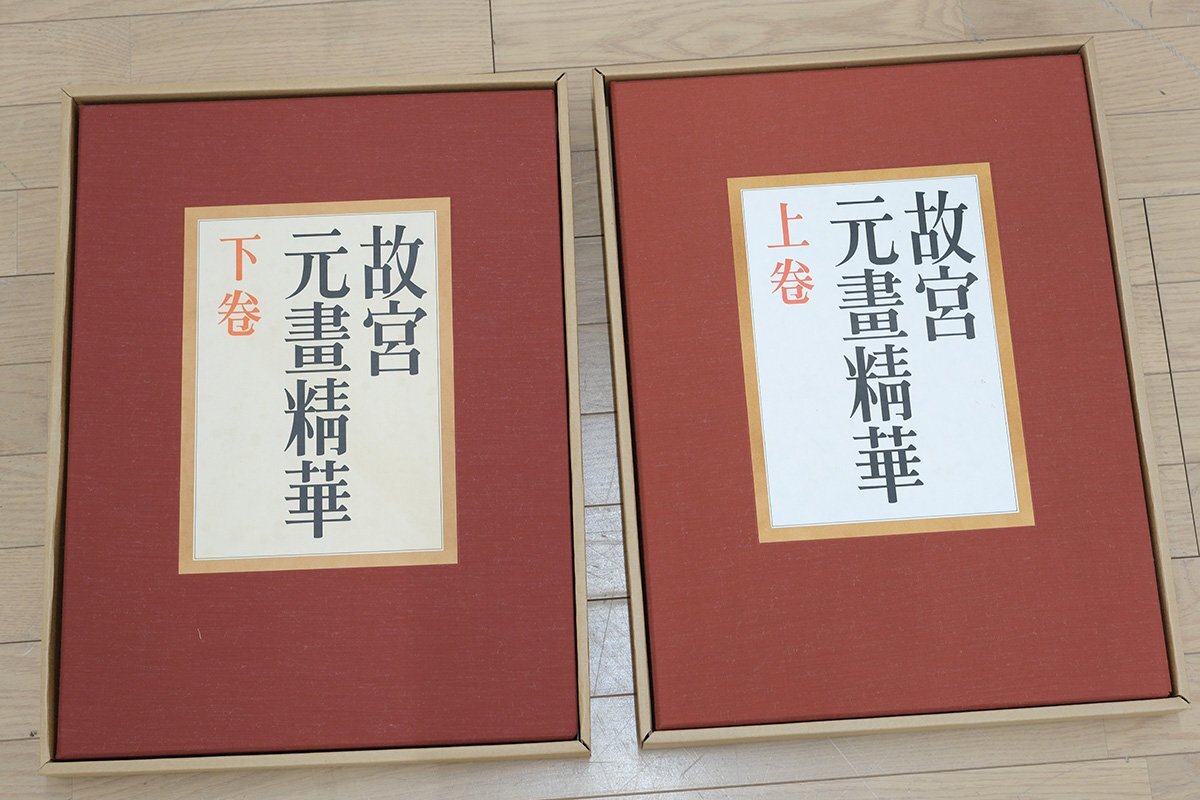 故宮
元畫精華
上卷
故宮
元畫精華
下卷